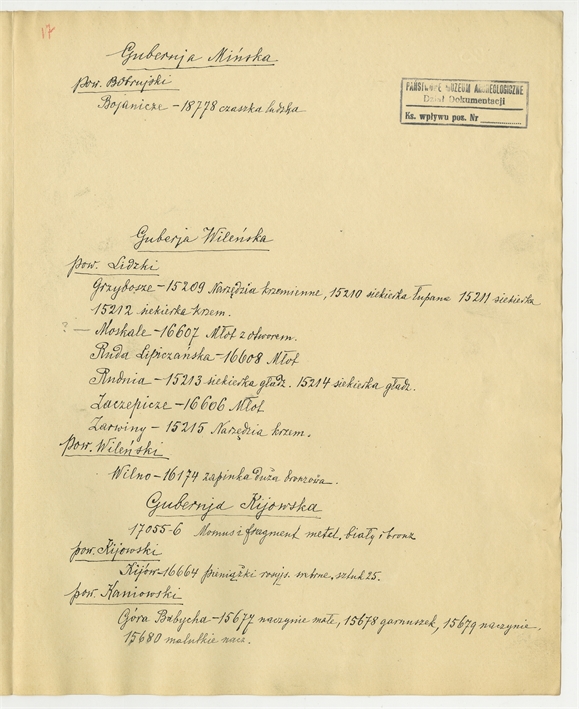 17
Gubernja Mińska
PAŃSTWOWE MUZEUM ARCHEOLOGICZNE
Dział Dokumentacji
Ks. wpływu poz. Nr
pow. Bobrujski
Bojanicze - 18778 czaszka ludzka
Guberja Wileńska
pow. Lidzki
Grzybosze - 15209 Narzędzia krzemienne, 15210 siekierka łupana 15211 siekierka
15212 siekierka krzem.
? — Moskale - 16607 Młot z otworem.
Ruda Lipiczańska - 16608 Młot
Rudnia - 15213 siekierka gładz. 15214 siekierka gładz.
Zaczepicze - 16606 Młot
Żarwiny - 15215 Narzędzia krzem.
pow. Wileński
Wilno - 16174 zapinka duża bronzowa.
Gubernja Kijowska
17055-6 i fragment metal. biały i bronz
pow. Kijowski
Kijów - 16664 pieniążki rosyjs. srebrne, sztuk 25.
pow. Kaniowski
Góra Babycha - 15677 naczynie małe, 15678 garnuszek, 15679 naczynie.
15680 malutkie nacz.